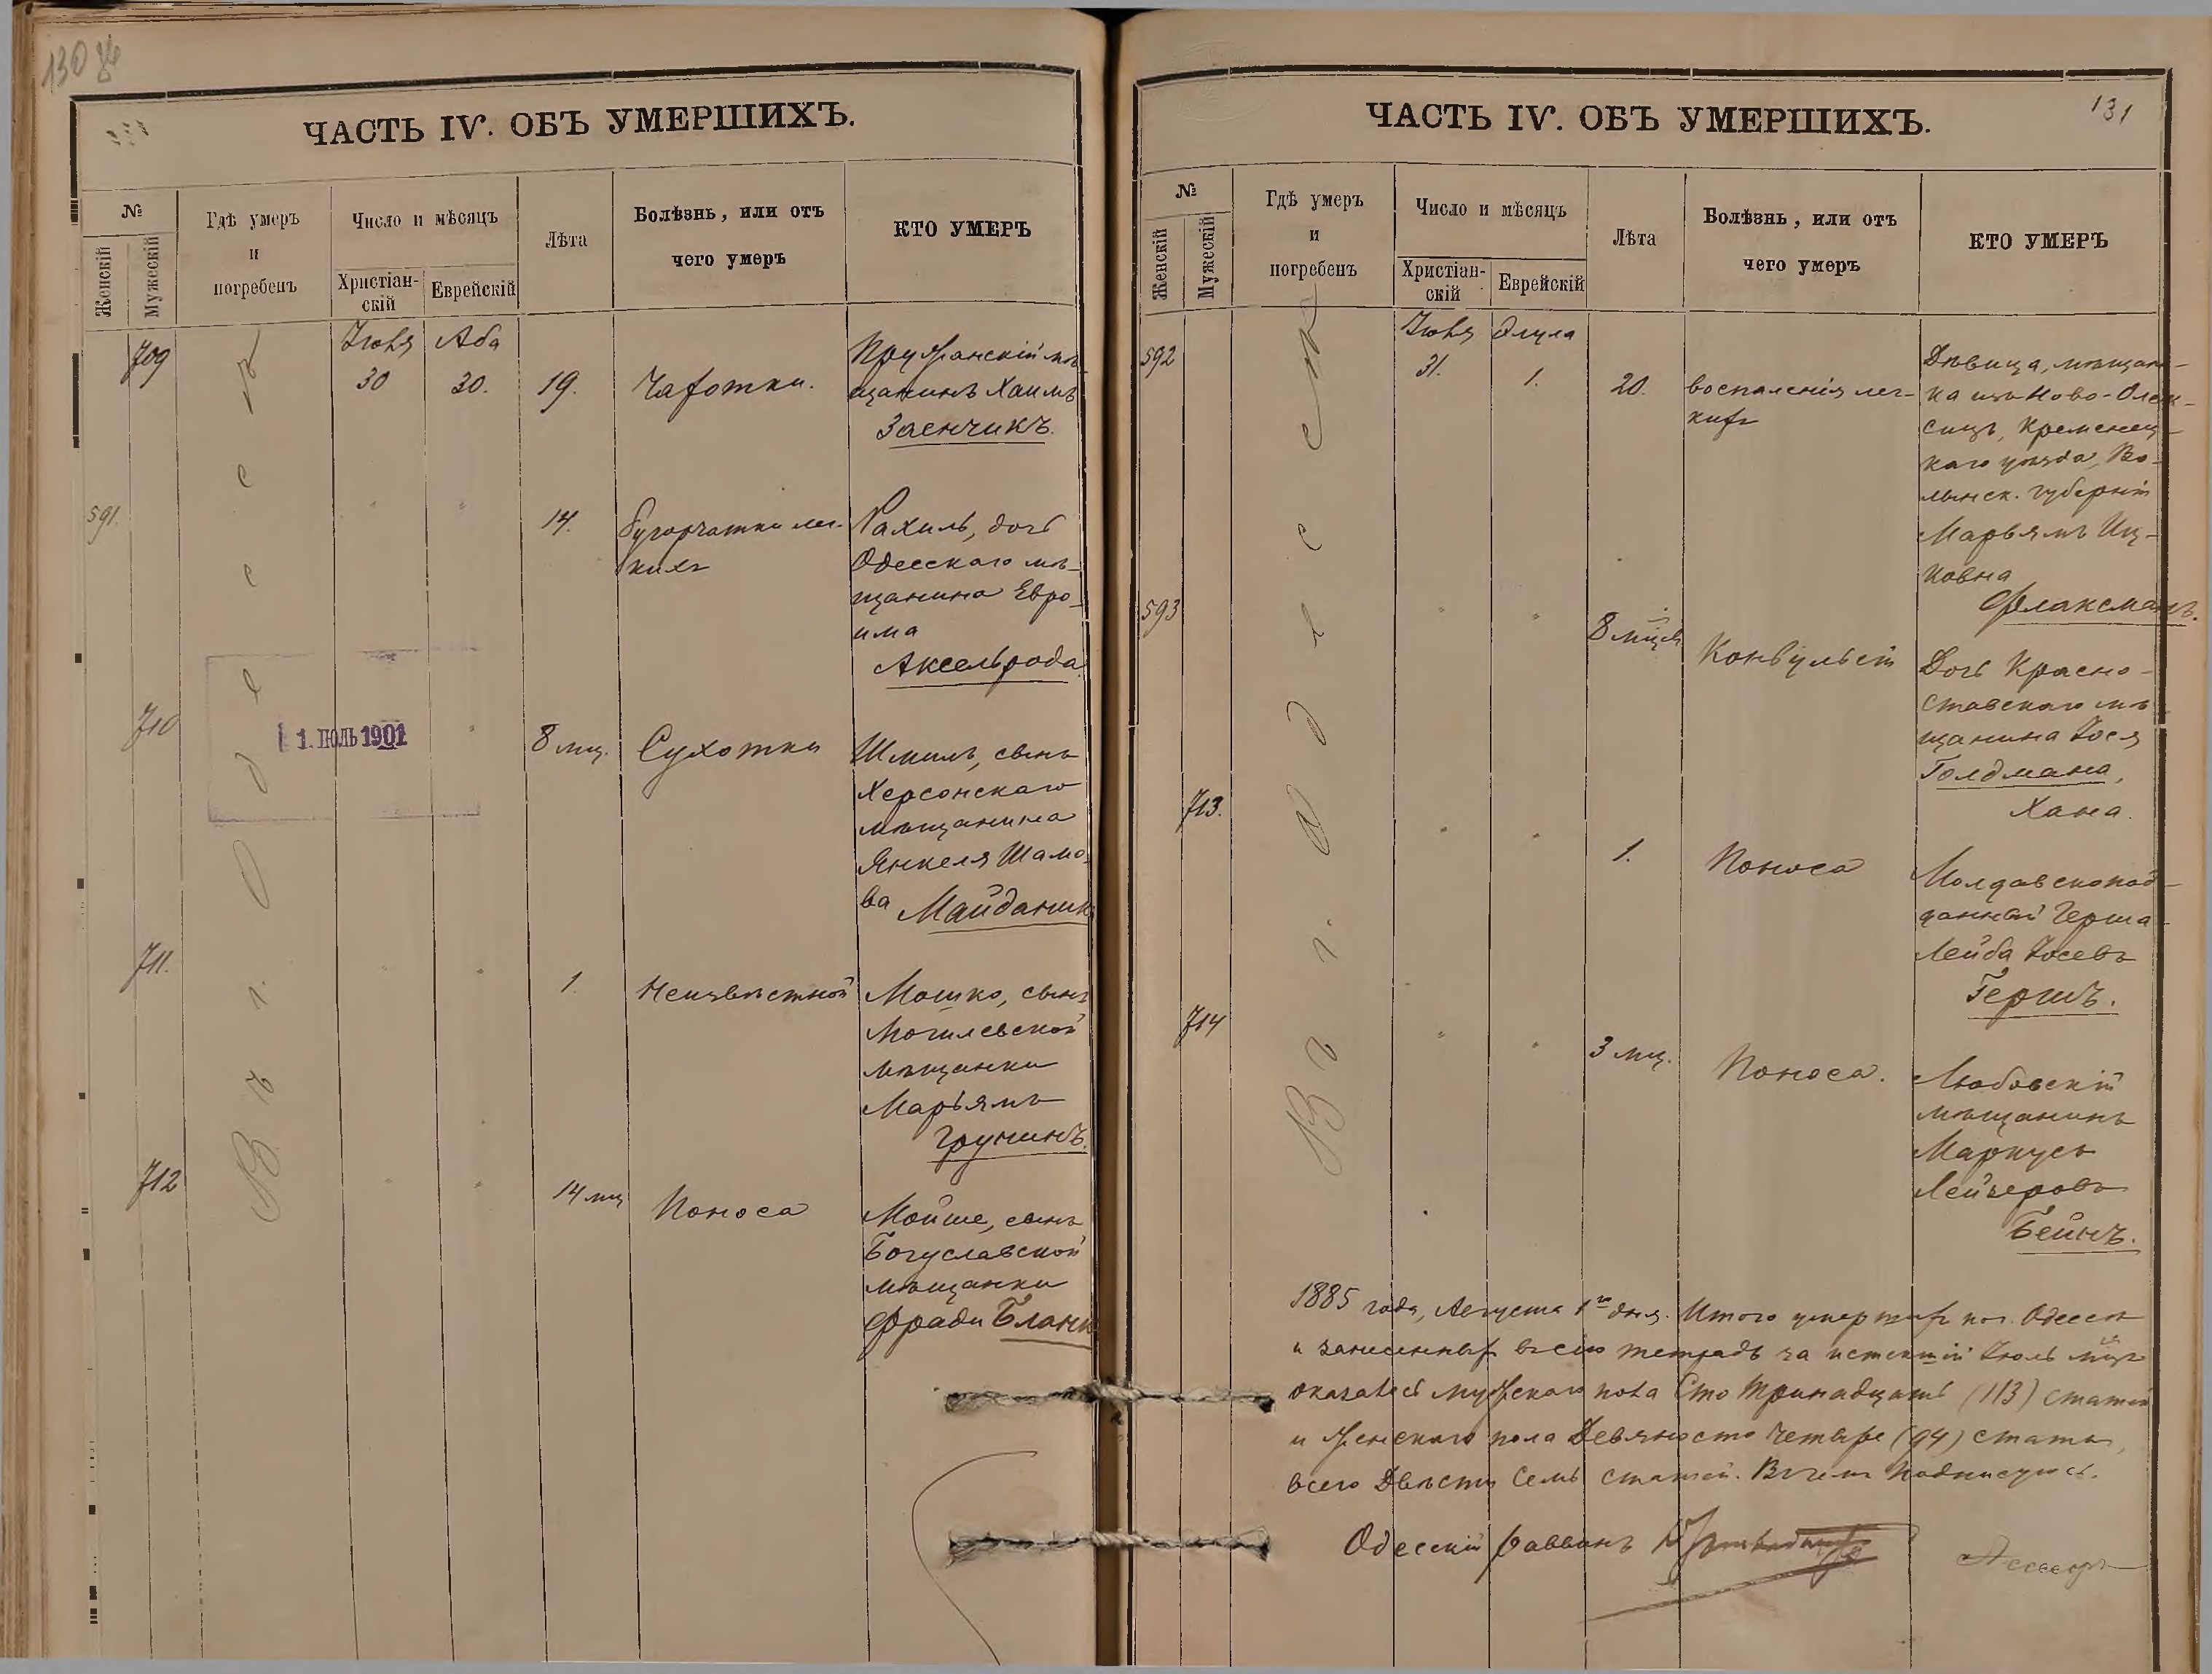 130
ЧАСТЬ IV. ОБЪ УМЕРШИХЪ.
№
Женскій
Мужескій
Гдѣ умеръ
и
погребенъ
Число и мѣсяцъ
Христіан-
скій
Еврейскій
Лѣта
Болѣзнь, или отъ
чего умеръ
КТО УМЕРЪ
Въ г. Одессѣ
709
Іюля
30
Аба
30.
19.
Чахотки.
Пружанскій мѣ-
щанинъ Хаимъ
Заенчикъ.
591.
"
"
14.
Бугорчатки лег-
кихъ
Рахиль, дочь
Одесскаго мѣ-
щанина Евро-
има
Аксельрода.
710
1. ІЮЛЬ 1901
"
8 мц.
Сухотки
Шмиль, сынъ
Херсонскаго
мѣщанина
Янкеля Шамо-
ва Майданик
711.
"
"
1.
Неизвѣстной
Мошко, сынъ
Могилевской
мѣщанки
Марьямъ
Грунинъ.
712
"
"
14 мц
Поноса
Мойше, сынъ
Богуславской
мѣщанки
Фради Бланк
ЧАСТЬ IV. ОБЪ УМЕРШИХЪ.
131
№
Женскій
Мужескій
Гдѣ умеръ
и
погребенъ
Число и мѣсяцъ
Христіан-
скій
Еврейскій
Лѣта
Болѣзнь, или отъ
чего умеръ
КТО УМЕРЪ
Въ г. Одессѣ
592
Іюля
31.
Элула
1.
20.
воспаленія лег-
кихъ
Дѣвица, мѣщан-
ка изъ Ново-Олек-
синца, Кременец-
каго уѣзда, Во-
лынск. губерніи
Марьямъ Иц-
ковна
Флаксманъ.
593
"
"
8 мцевъ
Конвульсіи
Дочь Красно-
ставскаго мѣ-
щанина Іося
Голдмана,
Хана.
713.
"
"
1.
Поноса
Молдавскопод-
данный Герша
Лейба Іосевъ
Гершъ.
714
"
"
3 мц.
Поноса.
Любовскій
мѣщанинъ
Маркусъ
Лейзеровъ
Бейнъ.
1885 года, Августа 1го дня. Итого умершихъ по г. Одессѣ
и занесенныхъ въ сію тетрадь за истекшій Іюль мцъ
оказалось мужскаго пола Сто тринадцать (113) статей
и женскаго пола Девяносто четыре (94) статьи,
всего Двѣсти семь статей. Въ чемъ подписуюсь.
Одесскій раввинъ